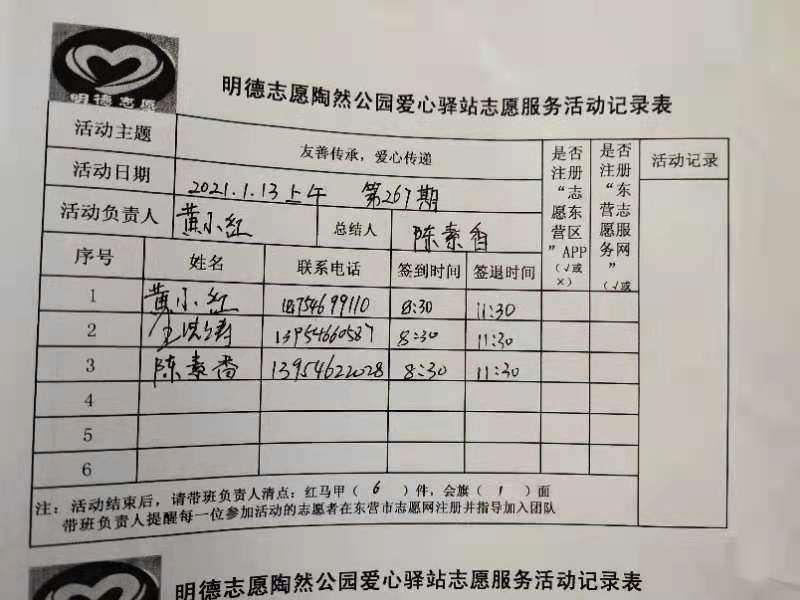 明德志愿
明德志愿陶然公园爱心驿站志愿服务活动记录表
活动主题 友善传承，爱心传递 是否注册“志愿东营区”APP（√或×） 是否注册“东营志愿服务网”（√或 活动记录
活动日期 2021.1.13上午 第267期
活动负责人 黄小红 总结人 陈素香
序号 姓名 联系电话 签到时间 签退时间
1 黄小红 18754699110 8:30 11:30
2 13954660587 8:30 11:30
3 陈素香 13954622028 8:30 11:30
4
5
6
注：活动结束后，请带班负责人清点：红马甲（ 6 ）件，会旗（ 1 ）面
带班负责人提醒每一位参加活动的志愿者在东营市志愿网注册并指导加入团队
明德志愿陶然公园爱心驿站志愿服务活动记录表